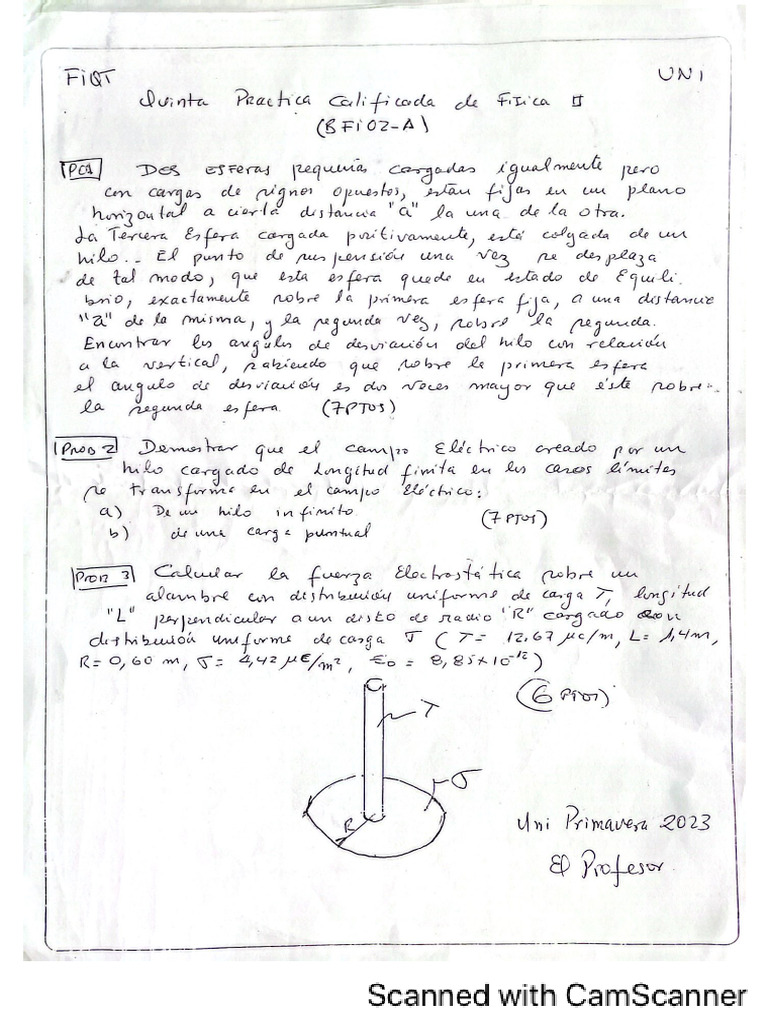 FIQT UNI
Quinta Practica Calificada de Fisica II
(BFI02-A)
PC01 Dos esferas pequeñas cargadas igualmente pero
con cargas de signos opuestos, estan fijas en un plano
horizontal a cierta distancia "a" la una de la otra.
La Tercera Esfera cargada positivamente, está colgada de un
hilo.. El punto de suspensión una vez se desplaza
de tal modo, que esta esfera quede en estado de Equili
brio, exactamente sobre la primera esfera fija, a una distancia
"a" de la misma, y la segunda vez, sobre la segunda.
Encontrar los angulos de desviación del hilo con relación
a la vertical, sabiendo que sobre la primera esfera
el angulo de desviación es dos veces mayor que éste sobre
la segunda esfera. (7PTOS)
PROB 2 Demostrar que el campo Eléctrico creado por un
hilo cargado de Longitud finita en los casos límites
se transforma en el campo eléctrico:
a) De un hilo infinito.
(7 PTOS)
b) de una carga puntual
PROB 3 Calcular la fuerza Electrostática sobre un
alambre con distribución uniforme de carga T, longitud
"L" perpendicular a un disco de radio "R" cargado con
distribución uniforme de carga σ (T= 12,67 μc/m, L= 1,4m,
R= 0,60 m, σ= 4,42 μC/m², ε0 = 8,85x10⁻¹²)
(6 PTOS)
T
σ
R
Uni Primavera 2023
El Profesor.
Scanned with CamScanner